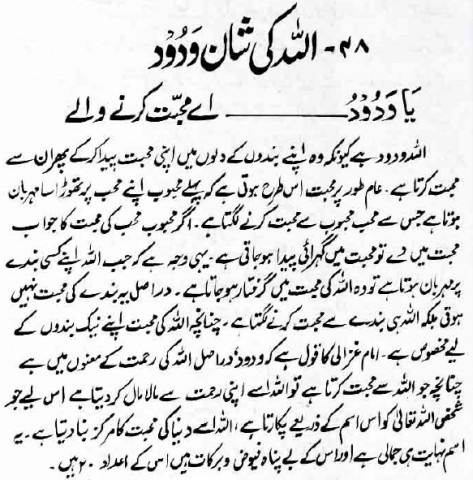 ۴۸- اللہ کی شان وَدُوْد
یَا وَدُوْدُ ــــــــــ اے محبّت کرنے والے
اللہ ودود ہے کیونکہ وہ اپنے بندوں کے دلوں میں اپنی محبت پیدا کر کے پھر ان سے
محبت کرتا ہے۔ عام طور پر محبت اس طرح ہوتی ہے کہ پہلے محبوب اپنے محب پر تھوڑا سا مہربان
ہوتا ہے جس سے محب محبوب سے محبت کرنے لگتا ہے۔ اگر محبوب محب کی محبت کا جواب
محبت میں دے تو محبت میں گہرائی پیدا ہو جاتی ہے۔ یہی وجہ ہے کہ جب اللہ اپنے کسی بندے
پر مہربان ہوتا ہے تو وہ اللہ کی محبت میں گرفتار ہو جاتا ہے۔ دراصل یہ بندے کی محبت نہیں
ہوتی بلکہ اللہ ہی بندے سے محبت کرنے لگتا ہے۔ چنانچہ اللہ کی محبت اپنے نیک بندوں کے
لیے مخصوص ہے۔ امام غزالی کا قول ہے کہ ودود دراصل اللہ کی رحمت کے معنوں میں ہے
چنانچہ جو اللہ سے محبت کرتا ہے تو اللہ اسے اپنی رحمت سے مالا مال کر دیتا ہے اس لیے جو
شخص اللہ تعالیٰ کو اس اسم کے ذریعے پکارتا ہے، اللہ اسے دنیا کی محبت کا مرکز بنا دیتا ہے۔ یہ
اسم نہایت ہی جمالی ہے اور اس کے بے پناہ فیوض و برکات ہیں اس کے اعداد ۲۰ ہیں۔